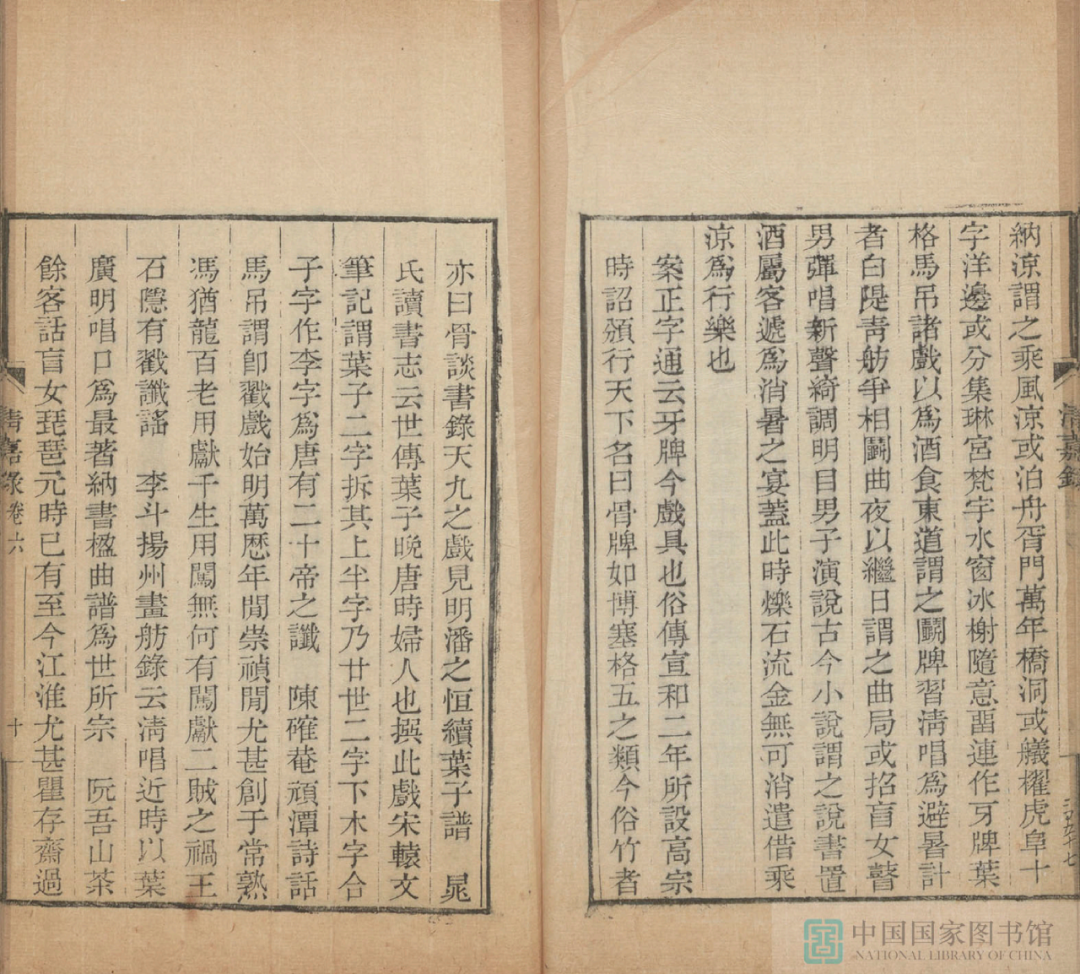 納涼謂之乘風涼或泊舟胥門萬年橋洞或艤櫂虎阜十
字洋邊或分集琳宮梵宇水窗冰榭隨意畱連作牙牌葉
格馬吊諸戲以爲酒食東道謂之鬭牌習淸唱爲避暑計
者白隄靑舫爭相鬭曲夜以繼日謂之曲局或招盲女瞽
男彈唱新聲綺調明目男子演說古今小說謂之說書置
酒屬客遞爲消暑之宴蓋此時爍石流金無可消遣借乘
涼爲行樂也
案正字通云牙牌今戲具也俗傳宣和二年所設高宗
時詔頒行天下名曰骨牌如博塞格五之類今俗竹者
淸嘉錄
亦曰骨談書錄天九之戲見明潘之恒續葉子譜 晁
氏讀書志云世傳葉子晚唐時婦人也撰此戲宋轅文
筆記謂葉子二字拆其上半字乃廿世二字下木字合
子字作李字爲唐有二十帝之讖 陳確菴頑潭詩話
馬吊謂卽戳戲始明萬厯年閒崇禎閒尤甚創于常熟
馮猶龍百老用獻千生用闖無何有闖獻二賊之禍王
石隱有戳讖謠 李斗揚州畫舫錄云淸唱近時以葉
廣明唱口爲最著納書楹曲譜爲世所宗 阮吾山茶
餘客話盲女琵琶元時已有至今江淮尤甚瞿存齋過
淸嘉錄卷六
十
中国国家图书馆
NATIONAL LIBRARY OF CHINA